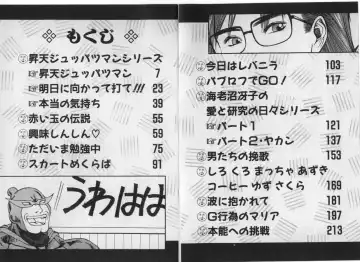 もくじ
昇天ジュッパツマンシリーズ
☞昇天ジュッパツマン 7
☞明日に向かって打て!!! 23
☞本当の気持ち 39
赤い玉の伝説 55
興味しんしん♡ 59
ただいま勉強中 75
スカートめくらば 91
うわはは
今日はレバニラ 103
パブロフでGO! 117
海老沼冴子の
愛と研究の日々シリーズ
☞パート1 121
☞パート2・ヤカン 137
男たちの挽歌 153
しろ くろ まっちゃ あずき
コーヒー ゆず さくら 169
波に抱かれて 181
G行為のマリア 197
本能への挑戦 213